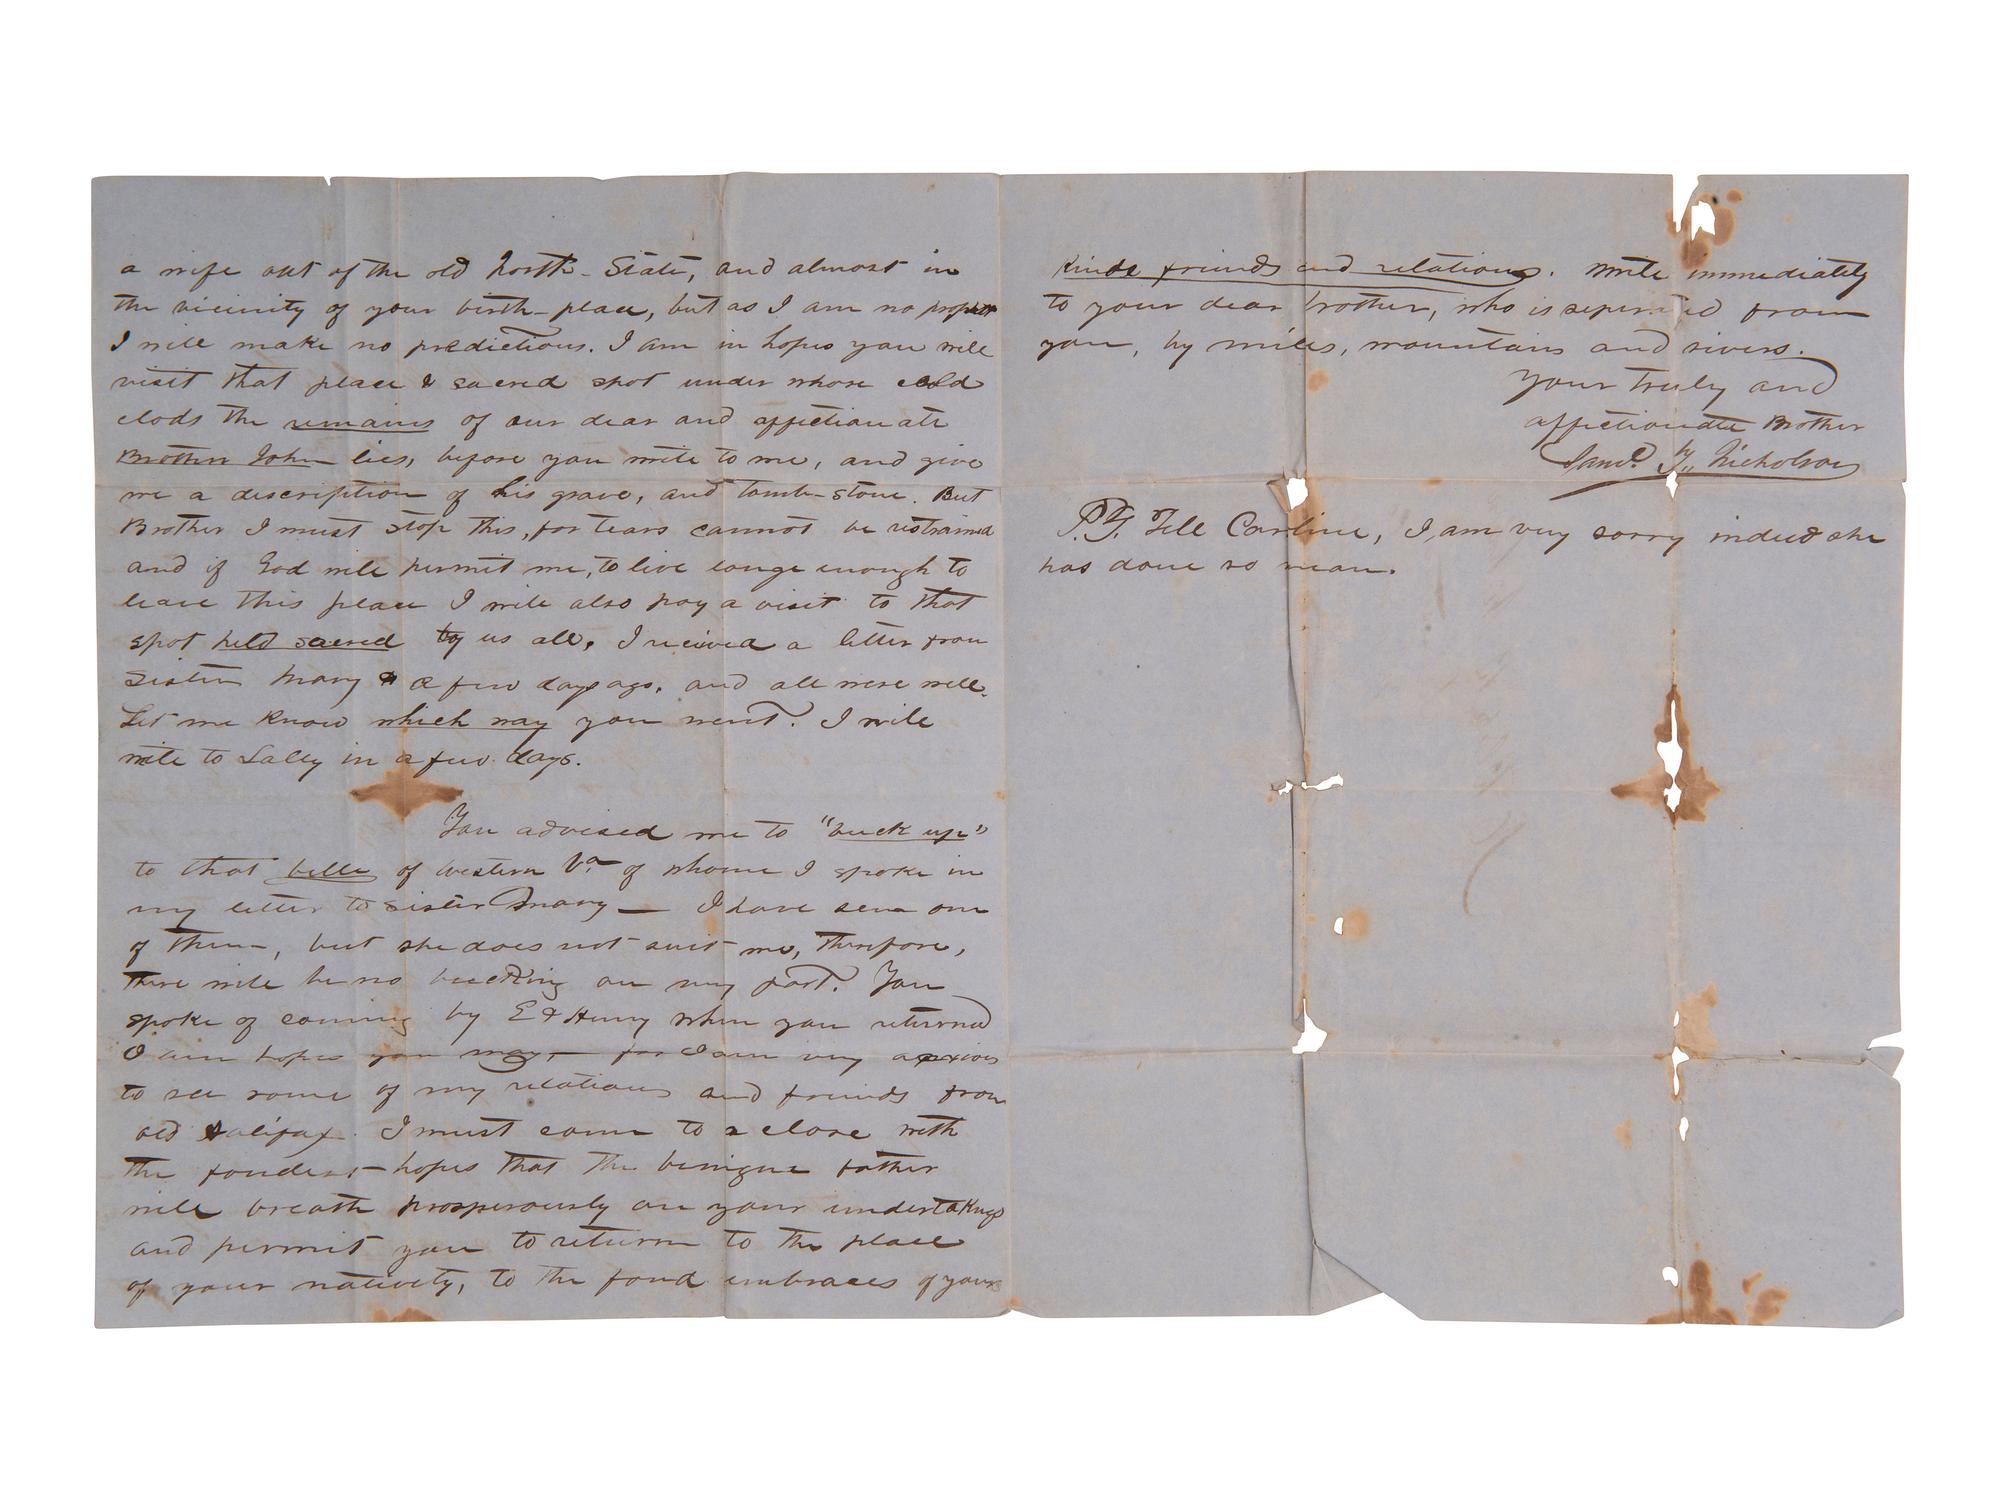 a wife out of the old North-State, and almost in
the vicinity of your birth-place, but as I am no prophet
I will make no predictions. I am in hopes you will
visit that place & sacred spot under whose cold
clods the remains of our dear and affectionate
Brother John lies, before you write to me, and give
me a description of his grave, and tomb-stone. But
Brother I must stop this, for tears cannot be restrained
and if God will permit me, to live longe enough to
leave this place I will also pay a visit to that
spot held sacred by us all. I received a letter from
Sister Mary a few days ago, and all were well.
Let me know which way you went. I will
write to Sally in a few days.
You advised me to "buck up"
to that belle of western Va. of whome I spoke in
my letter to Sister Mary — I have seen one
of them, but she does not suit me, therefore,
there will be no bucking on my part. You
spoke of coming by E & Henry when you returned
I am hopes you may, for I am very anxious
to see some of my relations and friends from
old Halifax. I must come to a close with
the fondest hopes that the benigne father
will breath prosperously on your undertakings
and permit you to return to the place
of your nativity, to the fond embraces of your
kinds friends and relations. Write immediately
to your dear brother, who is seperated from
you, by miles, mountains and rivers.
Your truly and
affectionate Brother
Saml. Nicholson
P.S. Tell Carline, I am very sorry indeed she
has done so mean.